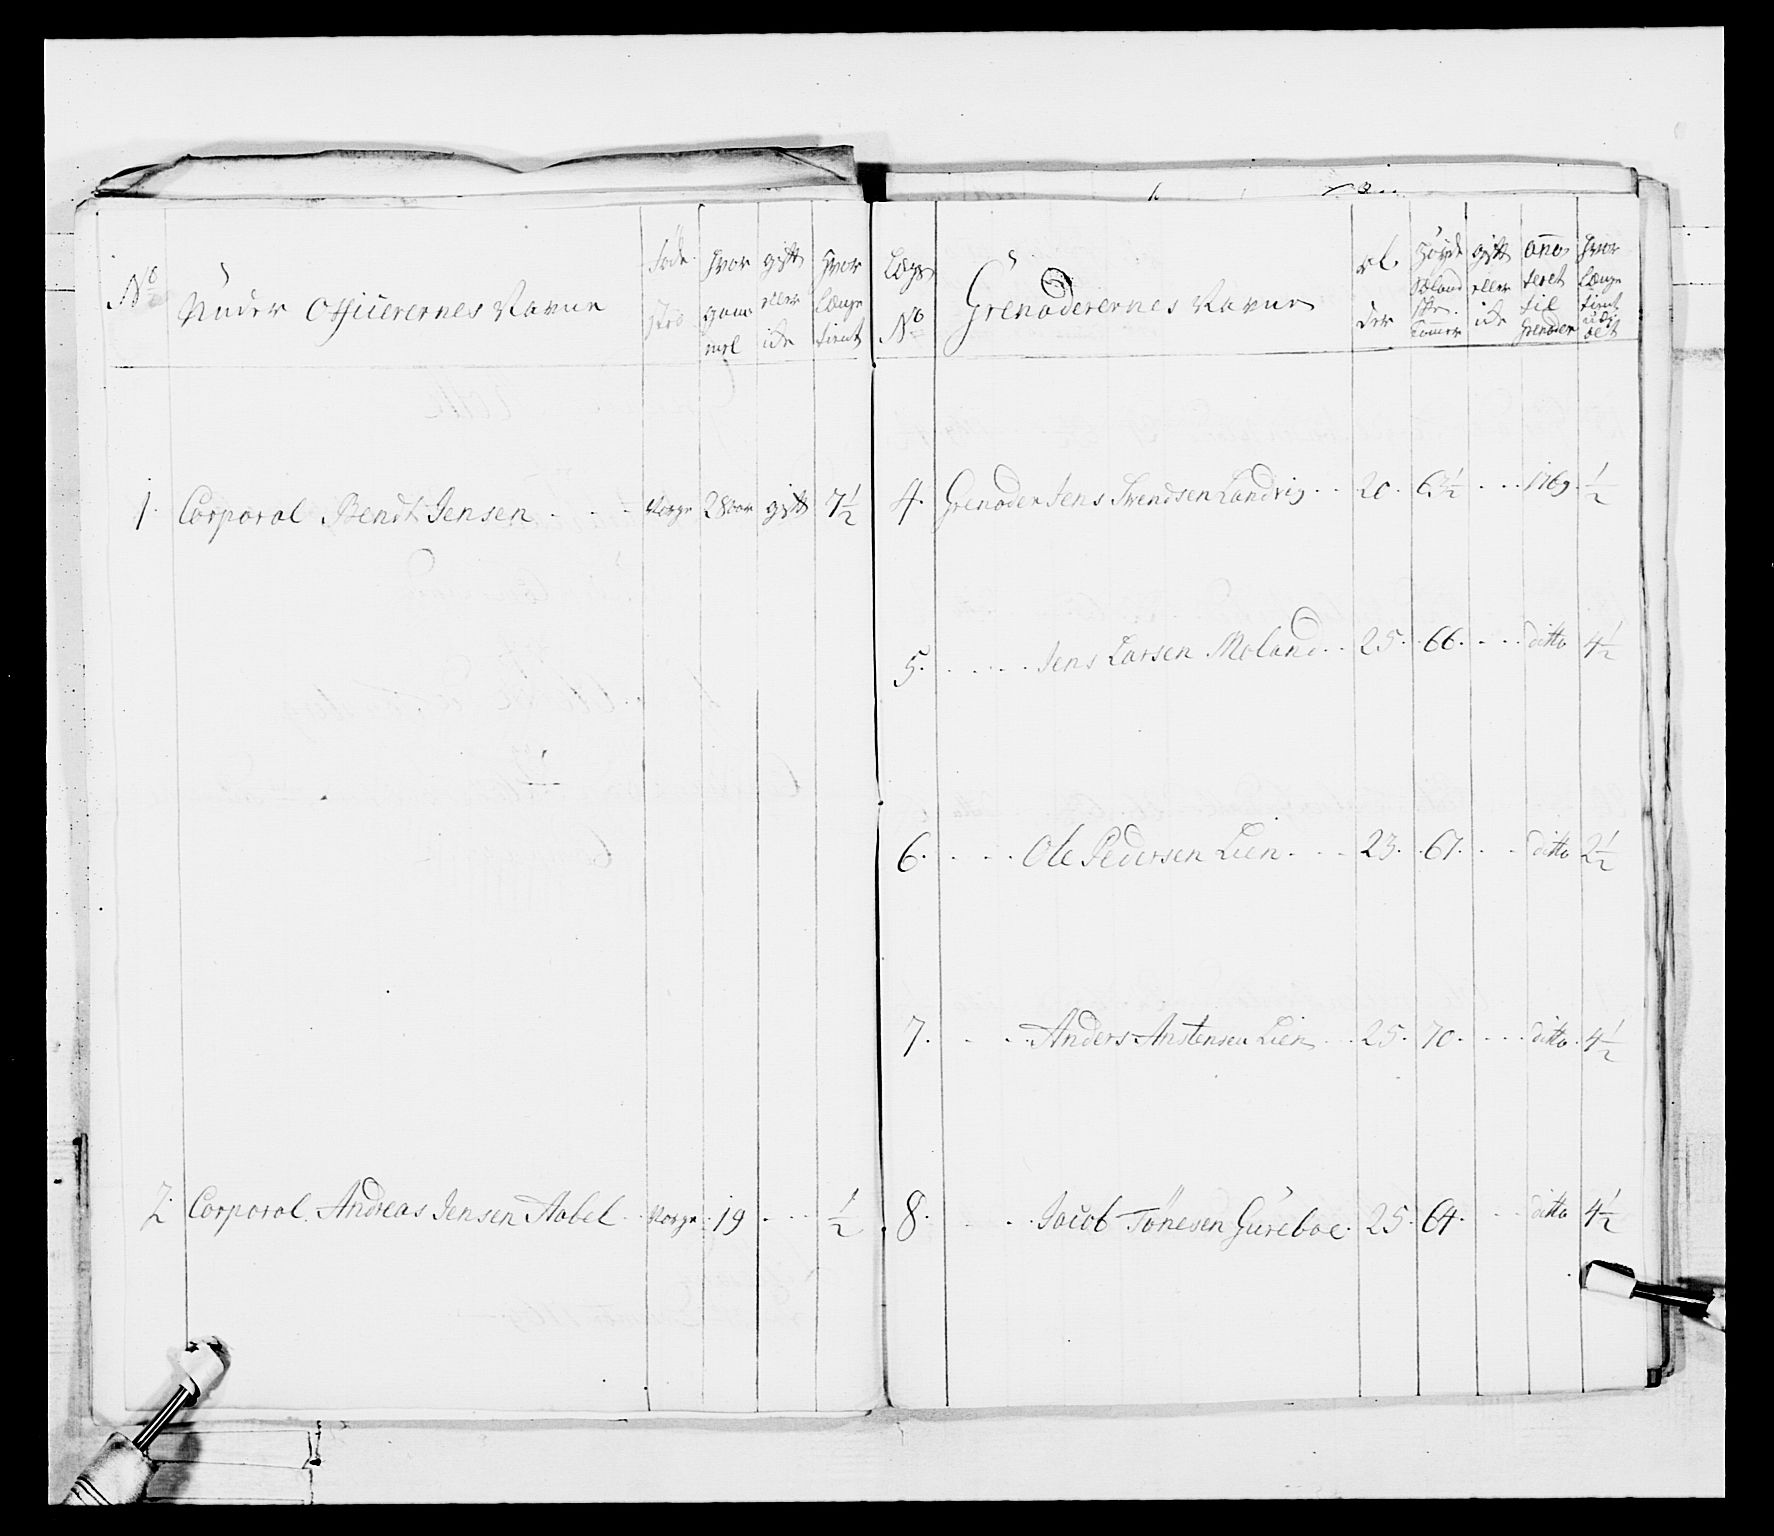 No
Under Officerernes Navne
Føde
sted
hvor
gam
mel
gift
eller
icke
hvor
længe
tient
1. Corporal Bendt Jensen Norge 28 aar gift 7½
2 Corporal Andreas Jensen Aabel Norge 19 ½
Lægs
No
Grenaderernes Navne
al
der
Høyde
Siæland
Tommer
gift
eller
icke
anno
teret
til
Grenader
hvor
længe
tient
4. Grenader Jens Svendsen Landvig 20. 63½ 1769. ½
5. Jens Larsen Moland 25. 66. ditto 4½
6. Ole Pedersen Lien 23. 67. ditto 2½
7. Anders Anstensen Lien 25. 70. ditto 4½
8. Jacob Tønesen Gureboe 25. 64. ditto 4½